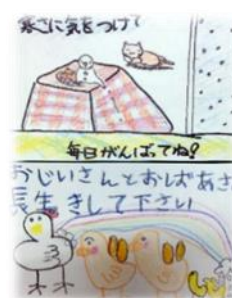 寒さに気をつけて
毎日がんばってね!
おじいさんとおばあさ
長生きして下さい